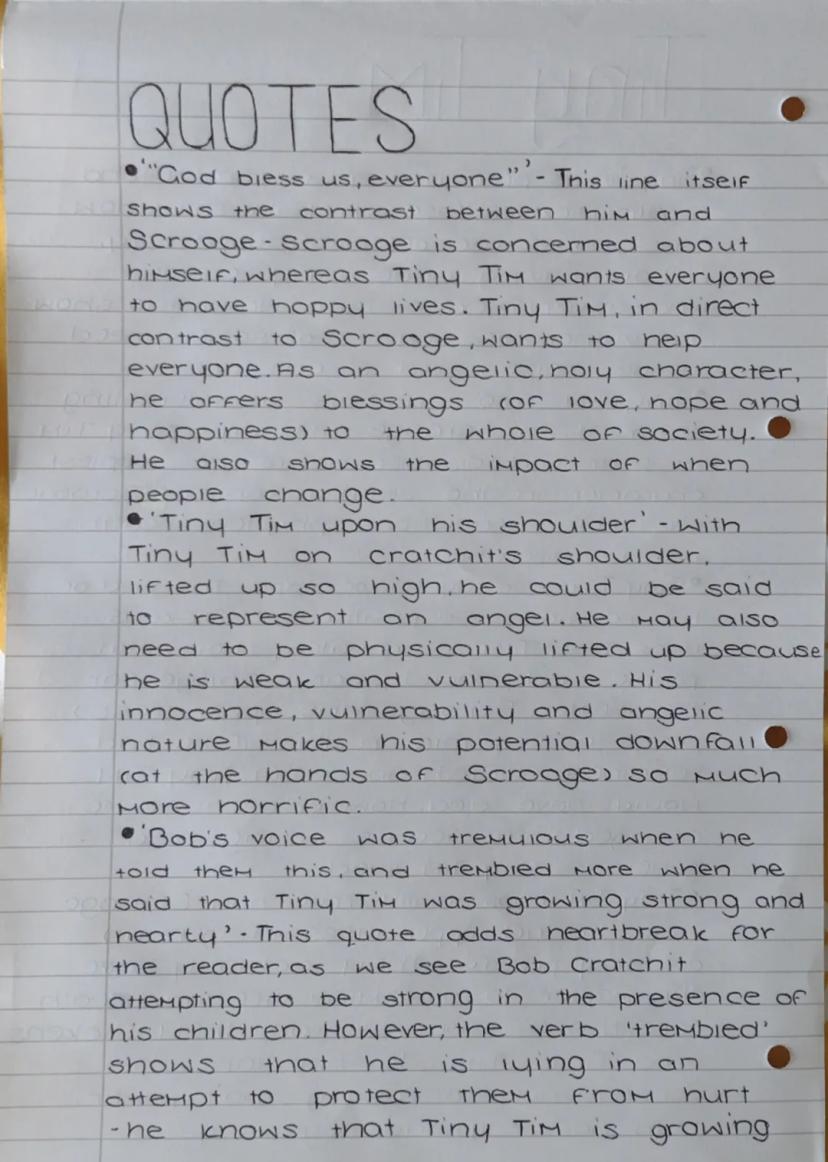 QUOTES
•'"God bless us, everyone"' - This line itself
shows the contrast between him and
Scrooge - Scrooge is concerned about
himself, whereas Tiny Tim wants everyone
to have happy lives. Tiny Tim, in direct
contrast to Scrooge, wants to help
everyone. As an angelic, holy character,
he offers blessings (of love, hope and
happiness) to the whole of society.
He also shows the impact of when
people change.
•'Tiny Tim upon his shoulder' - With
Tiny Tim on Cratchit's shoulder,
lifted up so high, he could be said
to represent an angel. He may also
need to be physically lifted up because
he is weak and vulnerable. His
innocence, vulnerability and angelic
nature makes his potential downfall
(at the hands of Scrooge) so much
more horrific.
•'Bob's voice was tremulous when he
told them this, and trembled more when he
said that Tiny Tim was growing strong and
hearty' - This quote adds heartbreak for
the reader, as we see Bob Cratchit
attempting to be strong in the presence of
his children. However, the verb 'trembled'
shows that he is lying in an
attempt to protect them from hurt
- he knows that Tiny Tim is growing